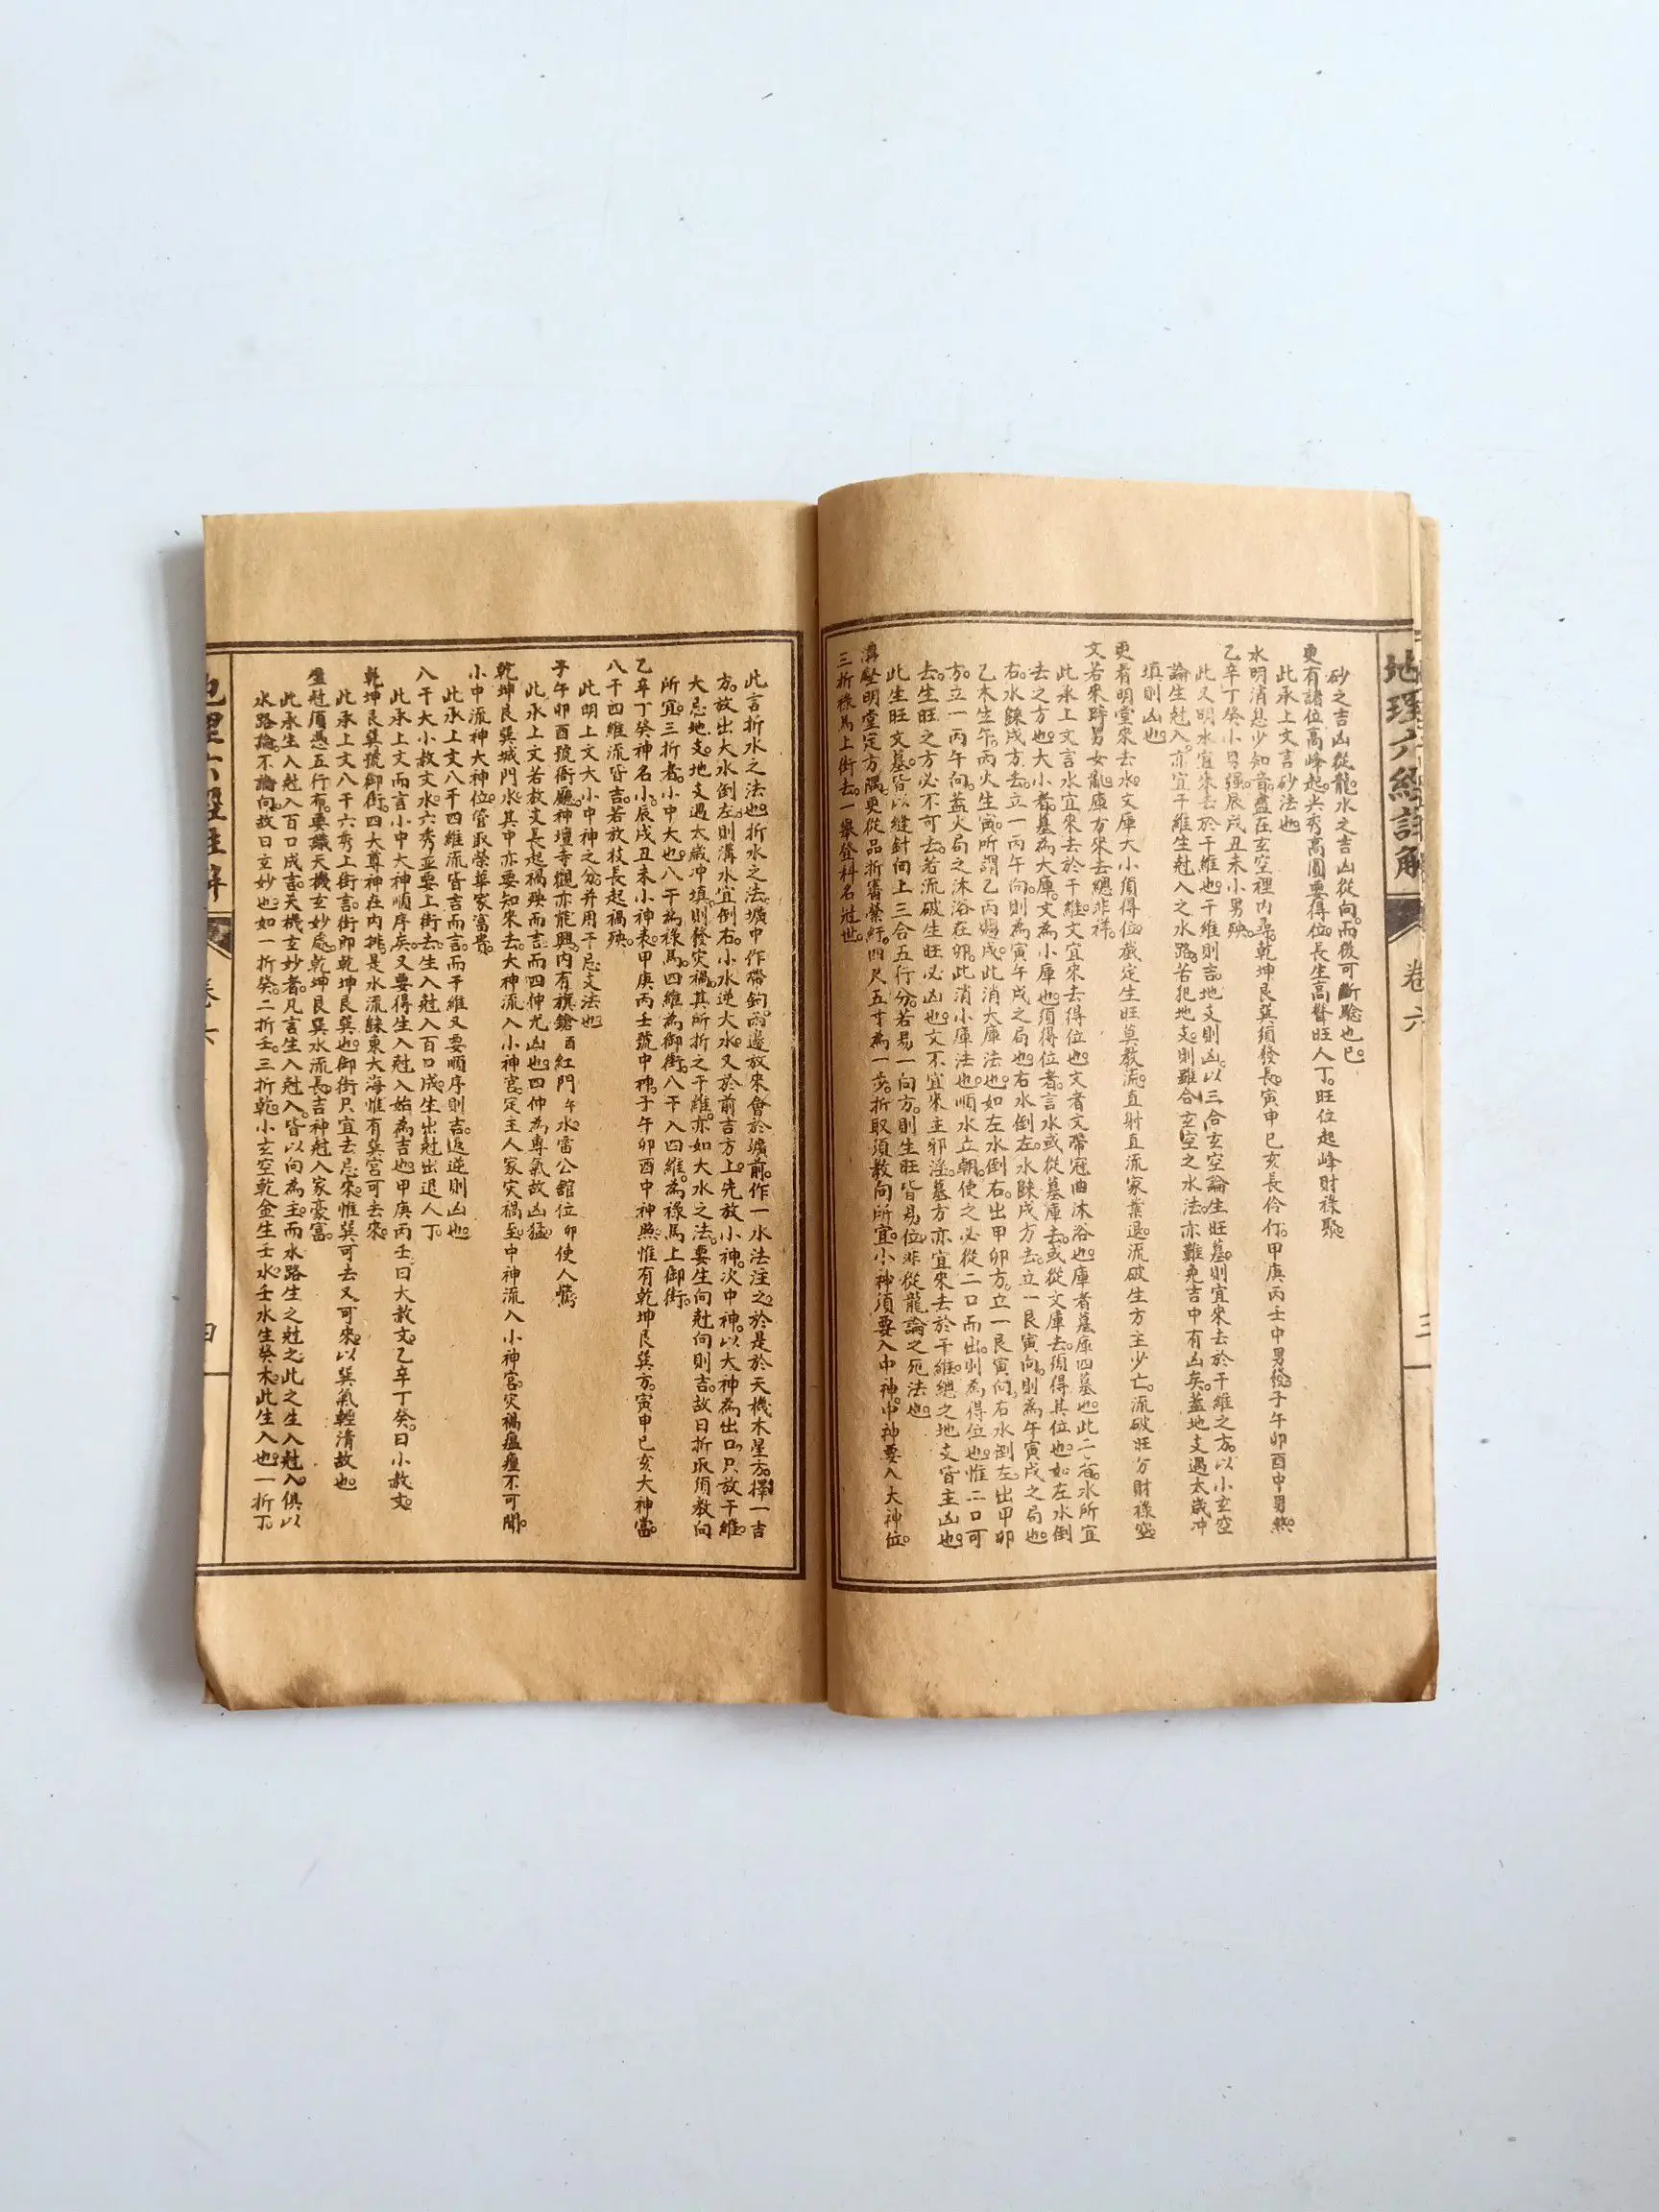 地理六經註解
卷六
三
砂之吉凶從龍水之吉凶從向而後可斷驗也已
更有諸位高峰起尖秀高圓要得位長生高聳旺人丁旺位起峰財祿聚
此承上文言砂法也
水明消息少知音盡在玄空裡內尋乾坤艮巽須發長寅申巳亥長伶仃甲庚丙壬中男發子午卯酉中男煞
乙辛丁癸小男强辰戌丑未小男殃
此又明水宜來去於干維也干維則吉地支則凶以三合玄空論生旺墓則宜來去於干維之方以小玄空
論生尅入亦宜干維生尅入之水路若犯地支則雖合玄空之水法亦難免吉中有凶矣蓋地支遇太歲冲
填則凶也
更看明堂來去水文庫大小須得位截定生旺莫教流直射直流家業退流破生方主少亡流破旺分財祿空
文若來時男女亂庫方來去總非祥
此承上文言水宜來去於干維文宜來去得位也文者文帶冠曲沐浴也庫者墓庫四墓也此二者水所宜
去之方也大小者墓為大庫文為小庫也須得位者言水或從墓庫去或從文庫去須得其位也如左水倒
右水歸戌方去立一丙午向則為寅午戌之局也右水倒左水歸戌方去立一艮寅向則為午寅戌之局也
乙木生午丙火生寅所謂乙丙趨戌此消大庫法也如左水倒右出甲卯方立一艮寅向右水倒左出甲卯
方立一丙午向蓋火局之沐浴在卯此消小庫法也順水立朝使之必從二口而出則為得位也惟二口可
去生旺之方必不可去若流破生旺必凶也文不宜來主邪淫墓方亦宜來去於干維總之地支皆主凶也
此生旺文墓皆以縫針向上三合五行分若易一向方則生旺皆易位非從龍論之死法也
溝壑明堂定方隅更從品折審縈紆四尺五寸為一步折取須教向所宜小神須要入中神中神要入大神位
三折祿馬上街去一舉登科名冠世
此言折水之法也折水之法壙中作帶鈎兩邊放來會於壙前作一水法注之於是於天機木星方擇一吉
方放出大水倒左則溝水宜倒右小水逆大水又於前吉方上先放小神次中神以大神為出口只放干維
大忌地支地支遇太歲冲填則發災禍其所折之干維亦如大水之法要生向尅向則吉故曰折取須教向
所宜三折者小中大也八干為祿馬四維為御街八干入四維為祿馬上御街
乙辛丁癸神名小辰戌丑未小神表甲庚丙壬號中神子午卯酉中神照惟有乾坤艮巽方寅申巳亥大神當
八干四維流皆吉若放枝長起禍殃
此明上文大小中神之分并用干忌支法也
子午卯酉號衙廳神壇寺觀亦能興內有旗鎗酉紅門午水雷公館位卯使人驚
此承上文若放支長起禍殃而言而四仲尤凶也四仲為專氣故凶猛
乾坤艮巽城門水其中亦要知來去大神流入小神宮定主人家災禍至中神流入小神宮災禍瘟㾮不可聞
小中流神大神位管取榮華家富貴
此承上文八干四維流皆吉而言而干維又要順序則吉返逆則凶也
八干大小赦文水六秀並要上街去生入尅入百口成生出尅出退人丁
此承上文而言小中大神順序矣又要得生入尅入始為吉也甲庚丙壬曰大赦文乙辛丁癸曰小赦文
乾坤艮巽號御街四大尊神在內挑是水流歸東大海惟有巽宮可去來
此承上文八干六秀上街言街即乾坤艮巽也御街只宜去忌來惟巽可去又可來以巽氣輕清故也
生尅須憑五行布要識天機玄妙處乾坤艮巽水流長吉神尅入家豪富
此承生入尅入百口成言天機玄妙者凡言生入尅入皆以向為主而水路生之尅之此之生入尅入俱以
水路論不論向故曰玄妙也如一折癸二折壬三折乾小玄空乾金生壬水壬水生癸木此生入也一折丁
地理六經註解
卷六
四